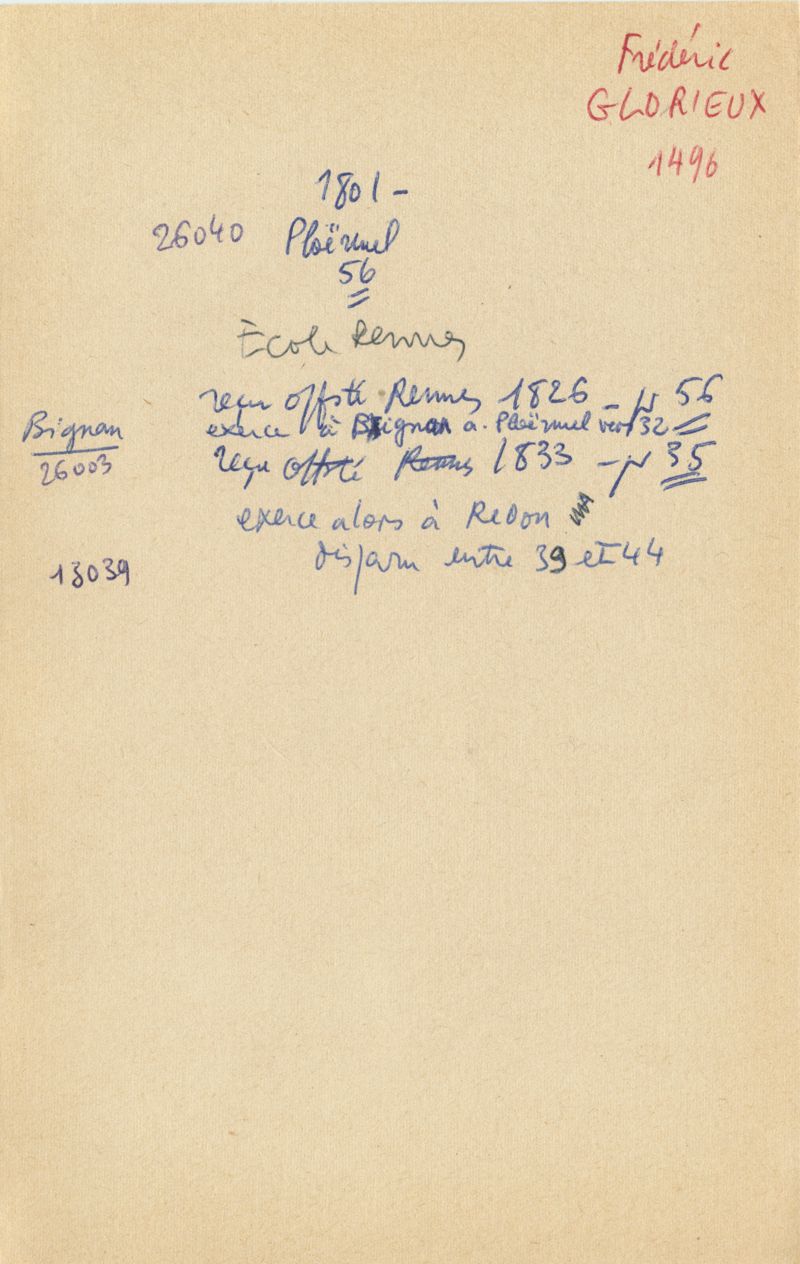 Frédéric
GLORIEUX
1496
1801 -
26040 Ploërmel
56
École Rennes
reçu offsté Rennes 1826 - pr 56
Bignan exerce à Bignan a. Ploërmel vers 32
26003 reçu offsté Rennes 1833 - pr 35
exerce alors à Redon
13039 disparu entre 39 et 44